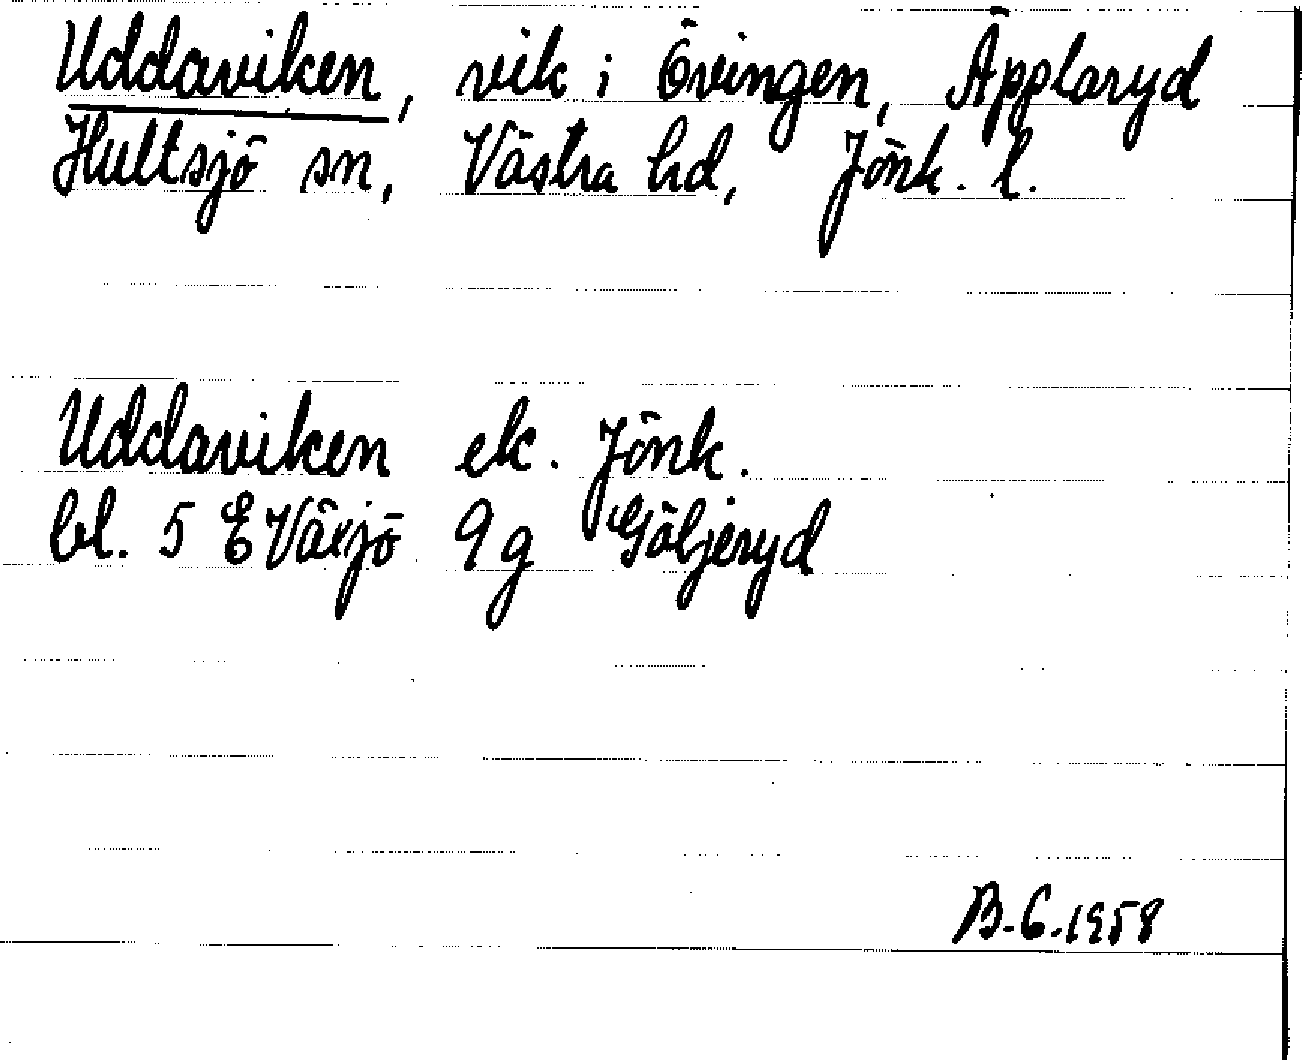 Uddaviken, vik i Övingen, Äpplaryd
Hultsjö sn, Västra hd, Jönk. l.
Uddaviken ek. Jönk.
bl. 5 E Växjö 9g Göljeryd
B.G. 1958